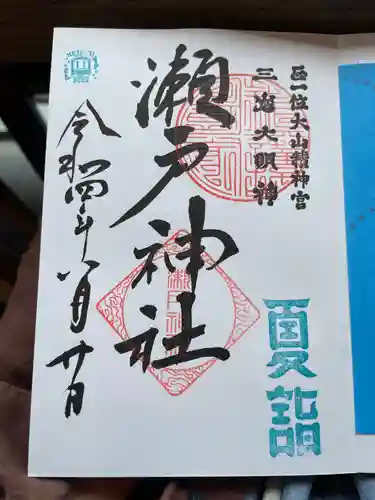 正一位大山積神宮
三島大明神
瀬戸神社
令和四年八月廿日
夏詣